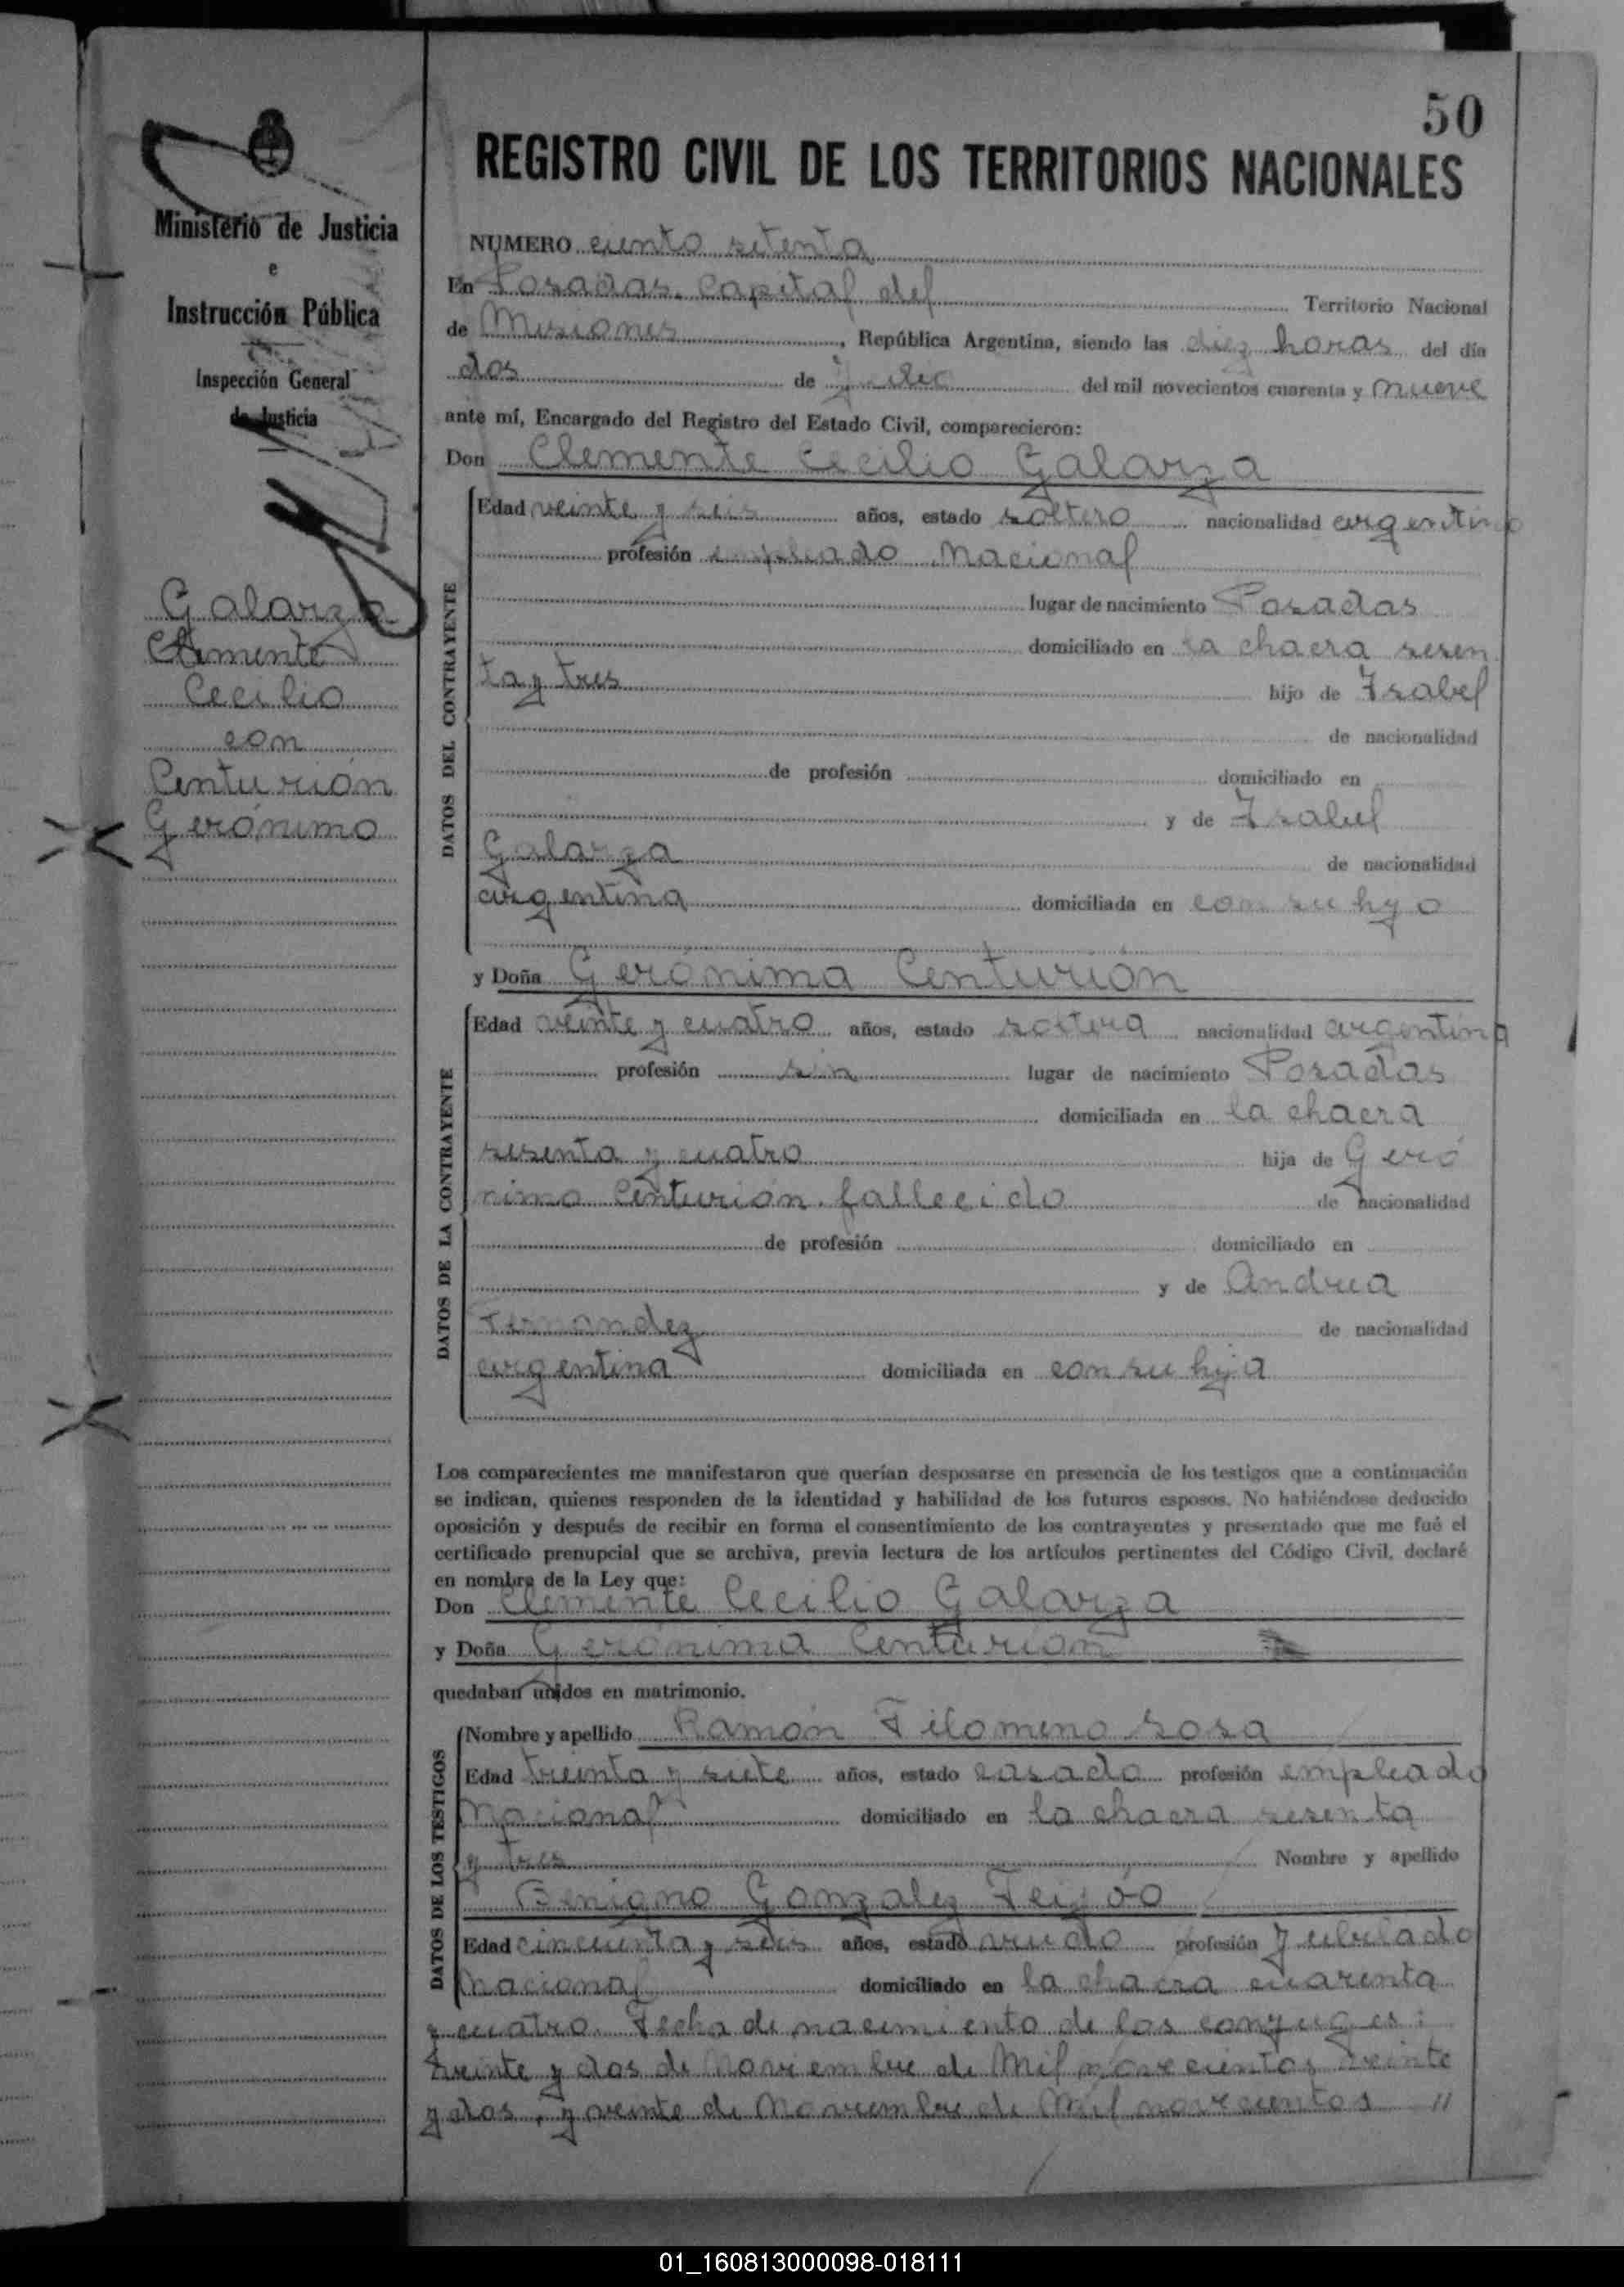 50
REGISTRO CIVIL DE LOS TERRITORIOS NACIONALES
Ministerio de Justicia
e
Instrucción Pública
Inspección General
de Justicia
Galarza
Clemente
Cecilio
con
Centurión
Gerónimo
NUMERO ciento setenta
En Posadas, Capital del Territorio Nacional
de Misiones, República Argentina, siendo las diez horas del día
dos de julio del mil novecientos cuarenta y nueve
ante mí, Encargado del Registro del Estado Civil, comparecieron:
Don Clemente Cecilio Galarza
DATOS DEL CONTRAYENTE
Edad veinte y seis años, estado soltero nacionalidad argentino
profesión empleado Nacional
lugar de nacimiento Posadas
domiciliado en la chacra sesen
ta y tres hijo de Isabel
de nacionalidad
de profesión domiciliado en
y de Isabel
Galarza de nacionalidad
argentina domiciliada en con su hijo
y Doña Gerónima Centurión
DATOS DE LA CONTRAYENTE
Edad veinte y cuatro años, estado soltera nacionalidad argentina
profesión sin lugar de nacimiento Posadas
domiciliada en la chacra
sesenta y cuatro hija de Geró
nimo Centurión, fallecido de nacionalidad
de profesión domiciliado en
y de Andrea
Fernandez de nacionalidad
argentina domiciliada en con su hija
Los comparecientes me manifestaron que querían desposarse en presencia de los testigos que a continuación
se indican, quienes responden de la identidad y habilidad de los futuros esposos. No habiéndose deducido
oposición y después de recibir en forma el consentimiento de los contrayentes y presentado que me fué el
certificado prenupcial que se archiva, previa lectura de los artículos pertinentes del Código Civil, declaré
en nombre de la Ley que:
Don Clemente Cecilio Galarza
y Doña Gerónima Centurión
quedaban unidos en matrimonio.
DATOS DE LOS TESTIGOS
Nombre y apellido Ramón Filomeno Sosa
Edad treinta y siete años, estado casado profesión empleado
Nacional domiciliado en la chacra sesenta
y tres Nombre y apellido
Benigno Gonzalez Feijóo
Edad cincuenta y seis años, estado viudo profesión Jubilado
Nacional domiciliado en la chacra cuarenta
y cuatro. Fecha de nacimiento de los conyuges:
veinte y dos de Noviembre de Mil novecientos veinte
y dos, y veinte de Noviembre de Mil novecientos //
01_160813000098-018111